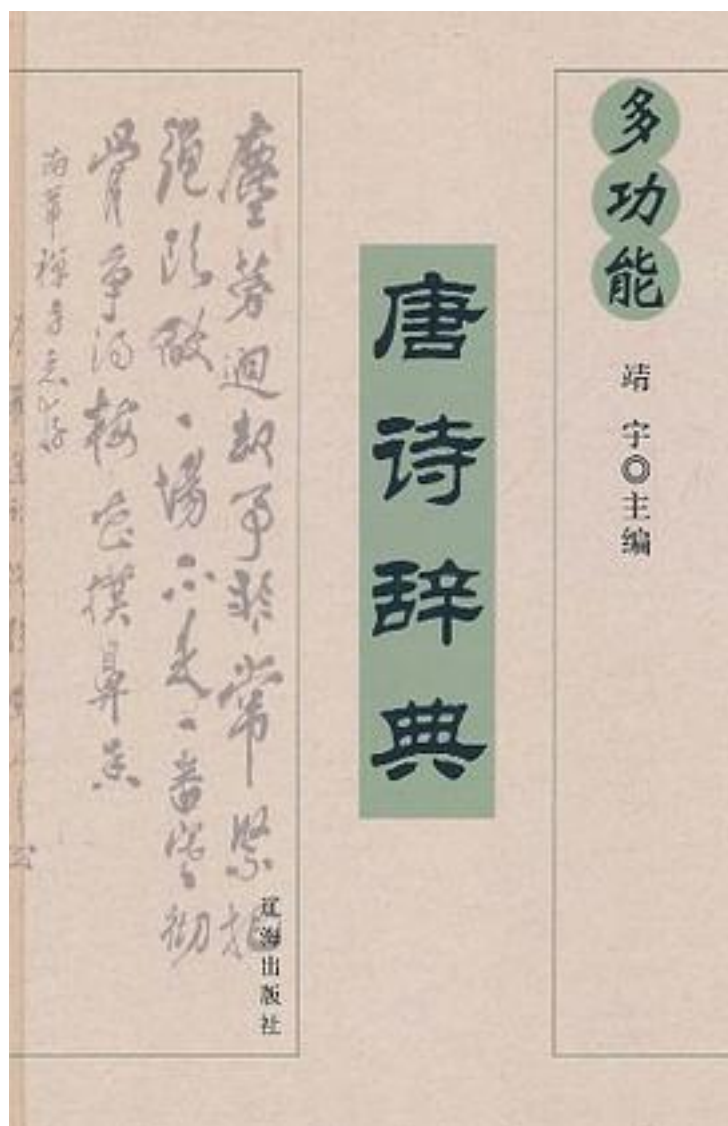 多功能
靖宇◎主编
唐诗辞典
塵勞迴脱事非常緊把
繩頭做一場不是一番寒彻
骨爭得梅花撲鼻香
辽海出版社